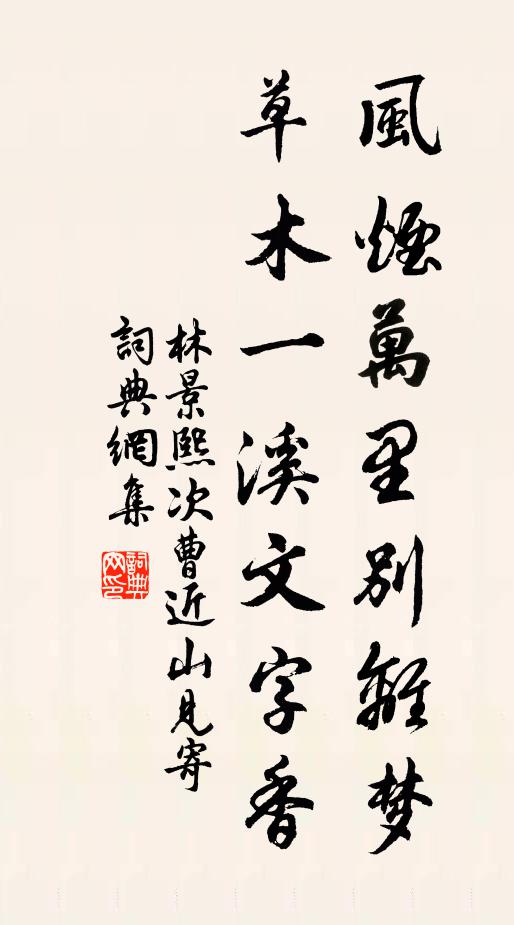 風煙萬里別離梦
草木一溪文字香
林景熙次曹近山見寄
詞典網集
詞典网印